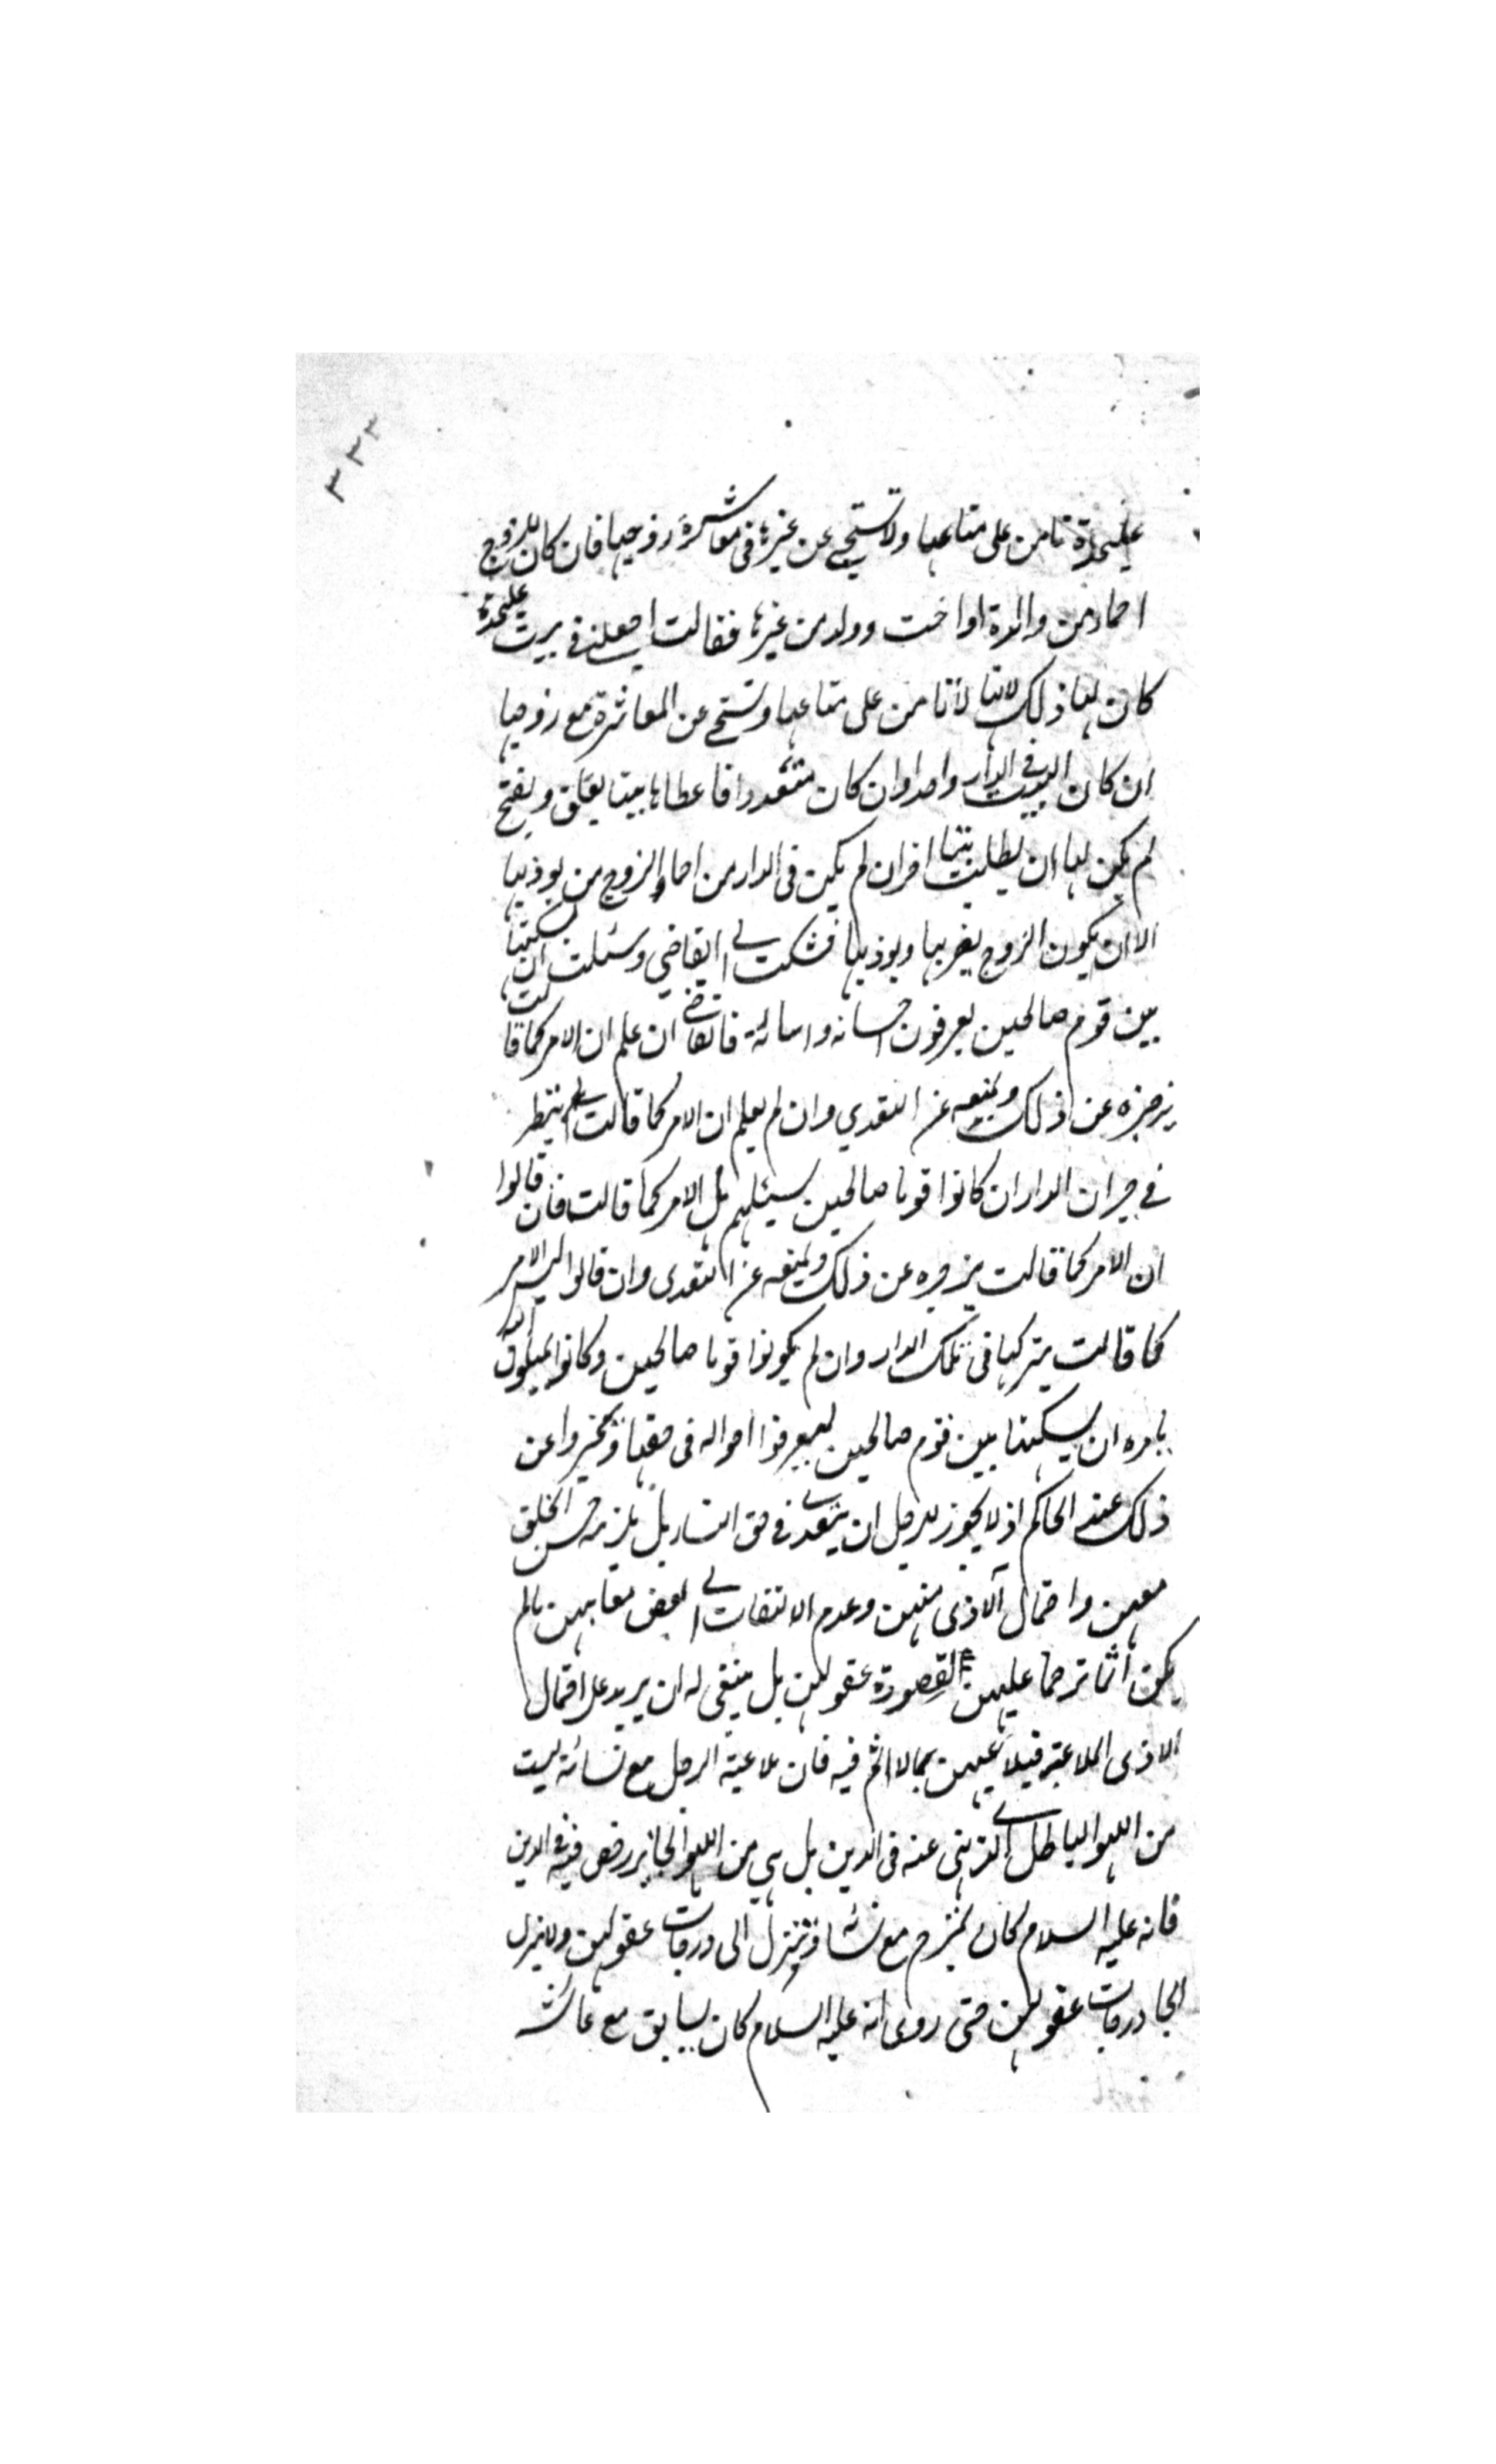 ٣٣٣
عليحدة تامن على متاعها ولا تستحي عن غيرها فى معاشرة زوجها فان كان للزوج
احماء من والدة او اخت وولد من غيرها فقالت اجعلنى فى بيت عليحدة
كان لها ذلك لانها لا تامن على متاعها وتستحى عن المعاشرة مع زوجها
ان كان البيت فى الدار واحدا وان كان متعددا فاعطاها بيتا يغلق ويفتح
لم يكن لها ان تطلب بيتا اخر ان لم يكن فى الدار من احماء الزوج من يوذيها
الا ان يكون الزوج يضربها ويوذيها فشكت الى القاضي وسئلت ان يسكنها
بين قوم صالحين يعرفون احسانه واسائته فالقاضى ان علم ان الامر كما قالت
يزجره عن ذلك ويمنعه عن التعدي وان لم يعلم ان الامر كما قالت ينظر
في جيران الدار ان كانوا قوما صالحين يسئلهم هل الامر كما قالت فان قالوا
ان الامر كما قالت يزجره عن ذلك ويمنعه عن التعدى وان قالوا ليس الامر
كما قالت يتركها فى تلك الدار وان لم يكونوا قوما صالحين وكانوا يميلون اليه
يامره ان يسكنها بين قوم صالحين ليعرفوا احواله فى حقها ويخبروا عن
ذلك عند الحاكم اذ لا يجوز للرجل ان يتعدى فى حق النساء بل يلزمه حسن الخلق
معهن واحتمال الاذى منهن وعدم الالتفات الى بعض معايبهن مالم
يكن اثما ترحما عليهن لقصور عقولهن بل ينبغى له ان يزيد على احتمال
الاذى الملاعبة فيلاعبهن بمالا اثم فيه فان ملاعبة الرجل مع نسائه ليست
من اللهو الباطل الذى نهى عنه فى الدين بل هي من اللهو الجائز رخص فيه فى الدين
فانه عليه السلام كان يمزح مع نسائه ويتنزل الى درجات عقولهن
درجات عقولهن حتى روى انه عليه السلام كان يسابق مع عائشة